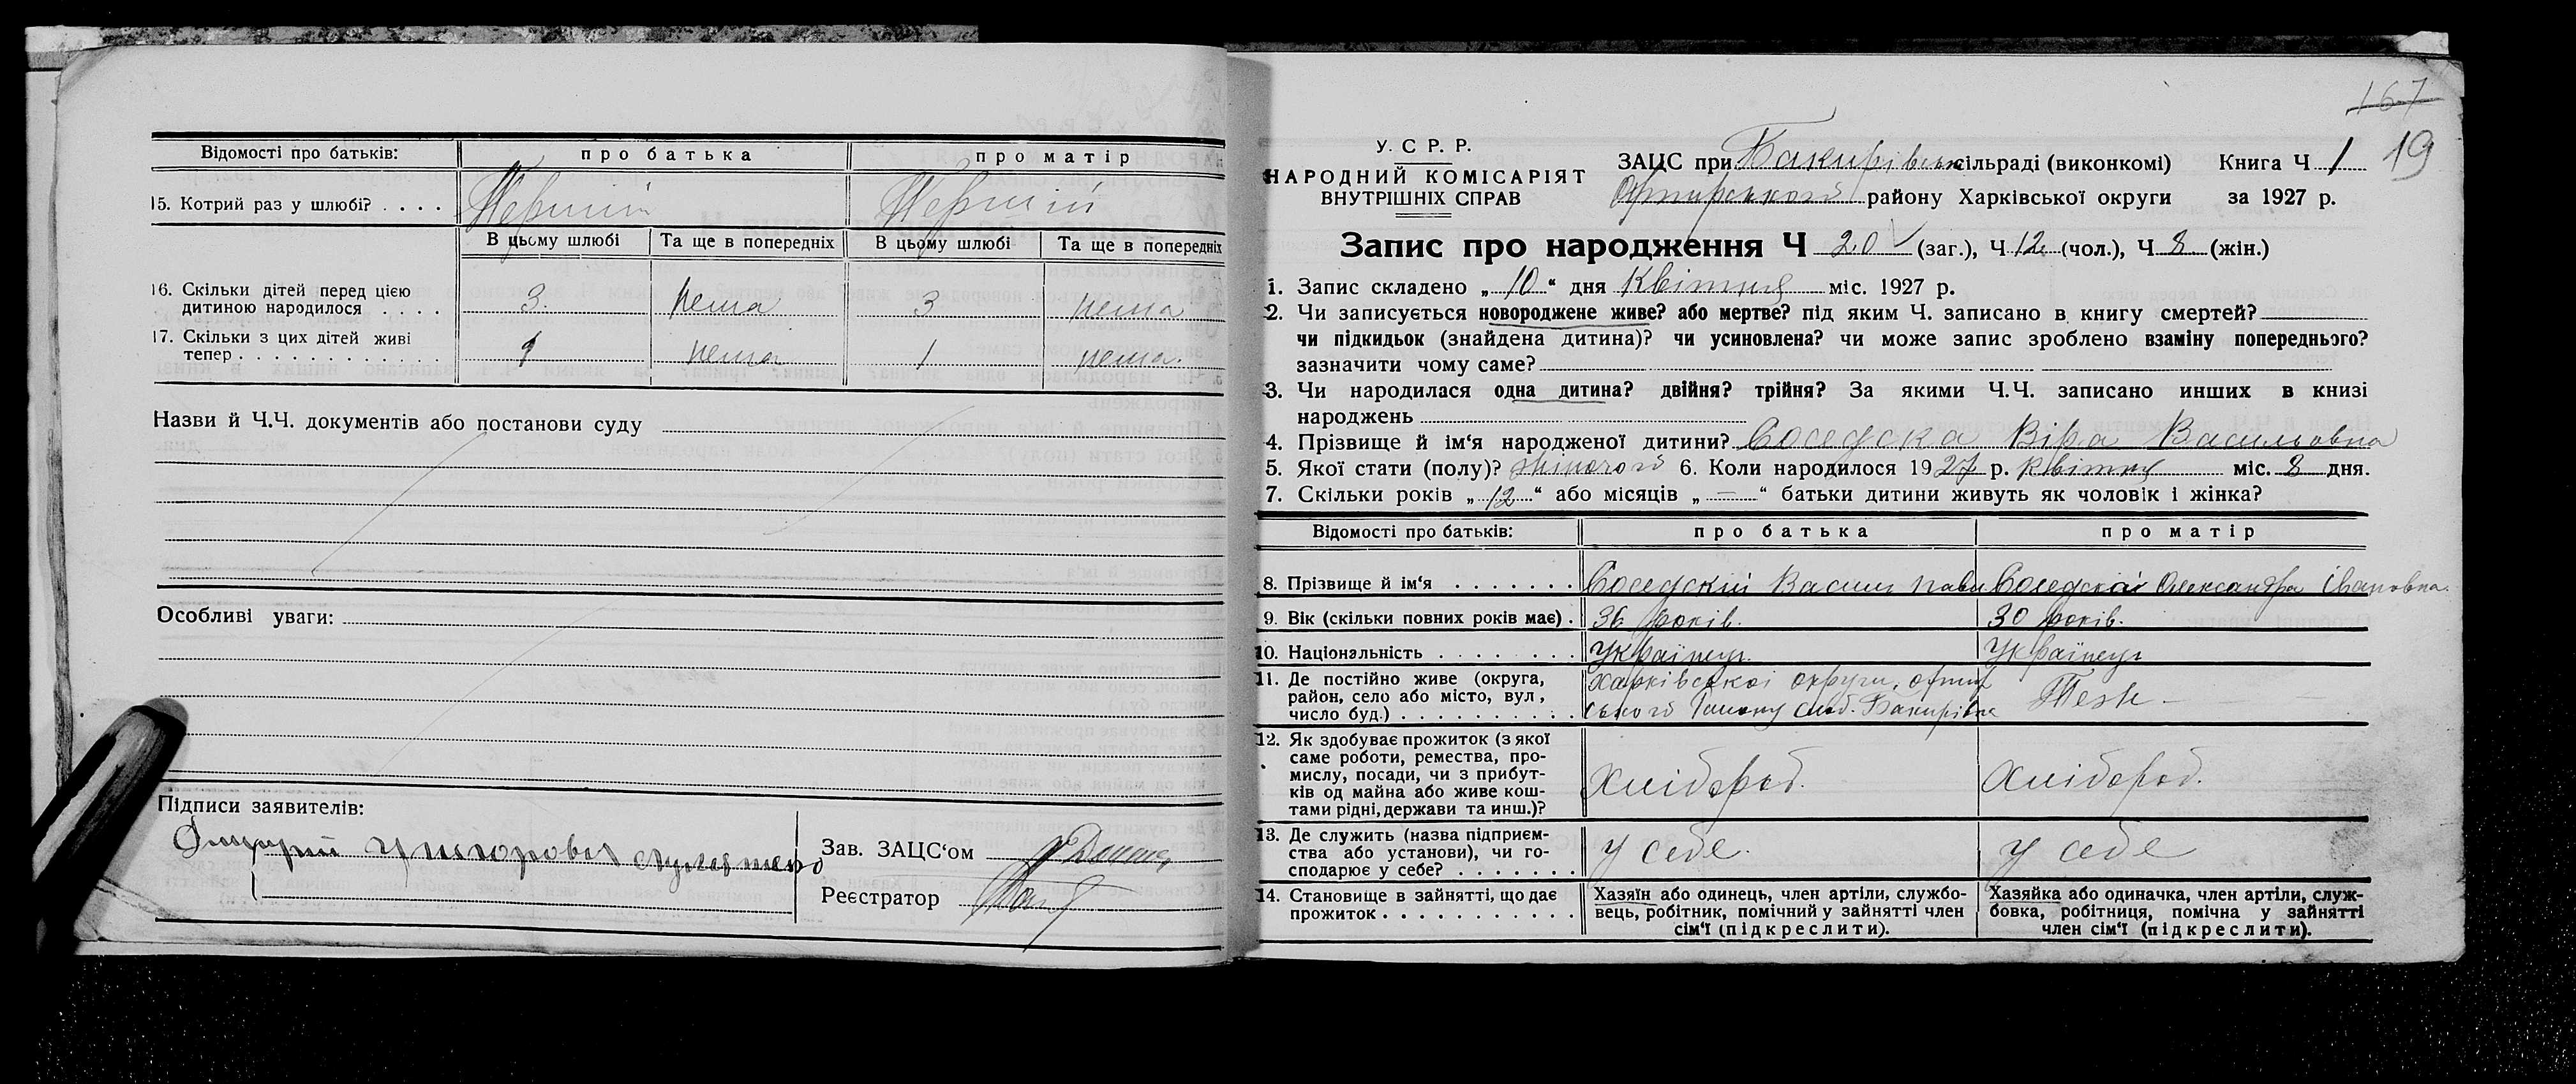 Відомості про батьків: про батька про матір
15. Котрий раз у шлюбі? . . . . Перший Перший
В цьому шлюбі Та ще в попередніх В цьому шлюбі Та ще в попередніх
16. Скільки дітей перед цією
дитиною народилося . . . . 3 нема 3 нема
17. Скільки з цих дітей живі
тепер . . . . . . . . . . . . 1 нема 1 нема.
Назви й Ч.Ч. документів або постанови суду
Особливі уваги:
Підписи заявителів:
Зав. ЗАЦС‘ом
Реєстратор
167
19
У. С Р. Р.
НАРОДНИЙ КОМІСАРІЯТ
ВНУТРІШНІХ СПРАВ
ЗАЦС при Бакирівськ сільраді (виконкомі) Книга Ч 1
Охтирського району Харківської округи за 1927 р.
Запис про народження Ч 20 (заг.), Ч 12 (чол.), Ч 8 (жін.)
1. Запис складено „ 10 “ дня Квітня міс. 1927 р.
2. Чи записується новороджене живе? або мертве? під яким Ч. записано в книгу смертей?
чи підкидьок (знайдена дитина)? чи усиновлена? чи може запис зроблено взаміну попереднього?
зазначити чому саме?
3. Чи народилася одна дитина? двійня? трійня? За якими Ч.Ч. записано инших в книзі
народжень
4. Прізвище й ім‘я народженої дитини? Соседска Віра Васильовна
5. Якої стати (полу)? жіночої 6. Коли народилося 1927 р. Квітня міс. 8 дня.
7. Скільки років „ 12 “ або місяців „ — “ батьки дитини живуть як чоловік і жінка?
Відомості про батьків: про батька про матір
8. Прізвище й ім‘я . . . . . . . Соседский Васил Павл Соседскаї Олександра Івановна.
9. Вік (скільки повних років має) . 36 років. 30 років.
10. Національність . . . . . . . Українец. Українец
11. Де постійно живе (округа,
район, село або місто, вул,
число буд.) . . . . . . . . . . Харківської округи, Охтир
ського району слоб. Бакирівка Теж -
12. Як здобуває прожиток (з якої
саме роботи, ремества, про-
мислу, посади, чи з прибут-
ків од майна або живе кош-
тами рідні, держави та инш.)? Хлібороб. Хлібороб.
13. Де служить (назва підприєм-
ства або установи), чи го-
сподарює у себе? . . . . . . . У себе. У себе
14. Становище в зайнятті, що дає
прожиток . . . . . . . . . . . .
Хазяїн або одинець, член артіли, службо-
вець, робітник, помічний у зайнятті член
сім‘ї (підкреслити).
Хазяйка або одиначка, член артіли, служ-
бовка, робітниця, помічна у зайнятті
член сім‘ї (підкреслити).